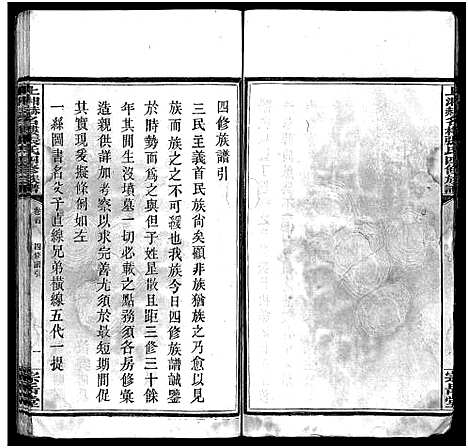 四修族譜引
三民主義首民族尙矣顧非族猶族之乃愈以見
族而族之之不可緩也我族今日四修族譜誠鑒
於時勢而族之與但予姓星散且距三修三十餘
年其間生沒墳墓一切必載之點務須各房修彙
造親供詳加考察以求完善尤須於最短期間促
其實現爰擬條例如左
一綠圖書名父子直線兄弟橫線五代一提
卷首
四修譜引
一
張氏四修族譜